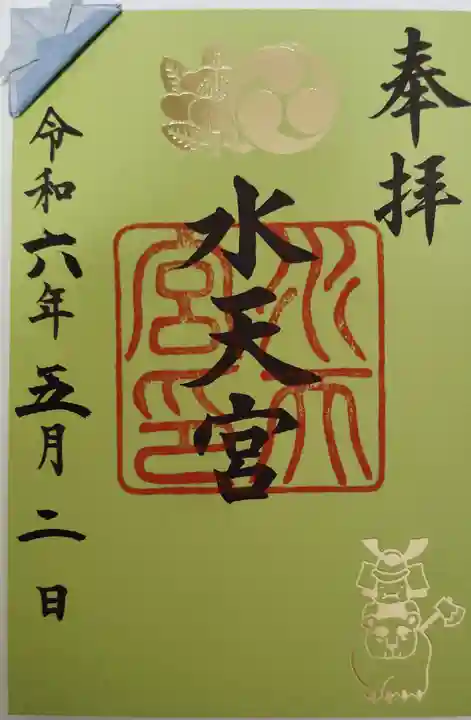 奉拝
水天宮
水天宮印
令和六年五月二日